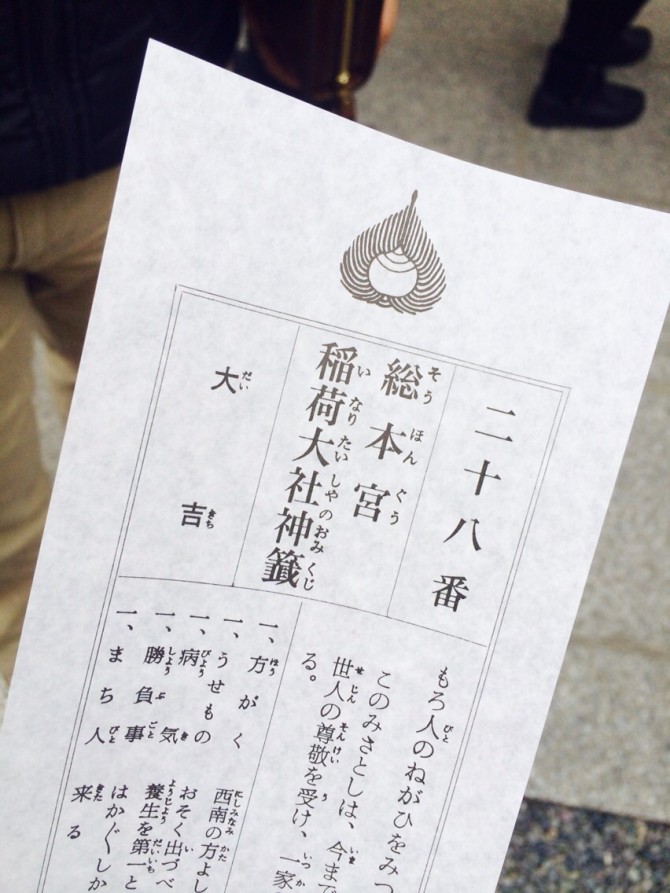 二十八番
総本宮
稲荷大社神籤
大吉
もろ人のねがひをみつ
このみさとしは、今まで
世人の尊敬を受け、一家
る。
一、方がく 西南の方よし
一、うせもの おそく出づべ
一、病気 養生を第一と
一、勝負事 はか〴〵しか
一、まち人 来る